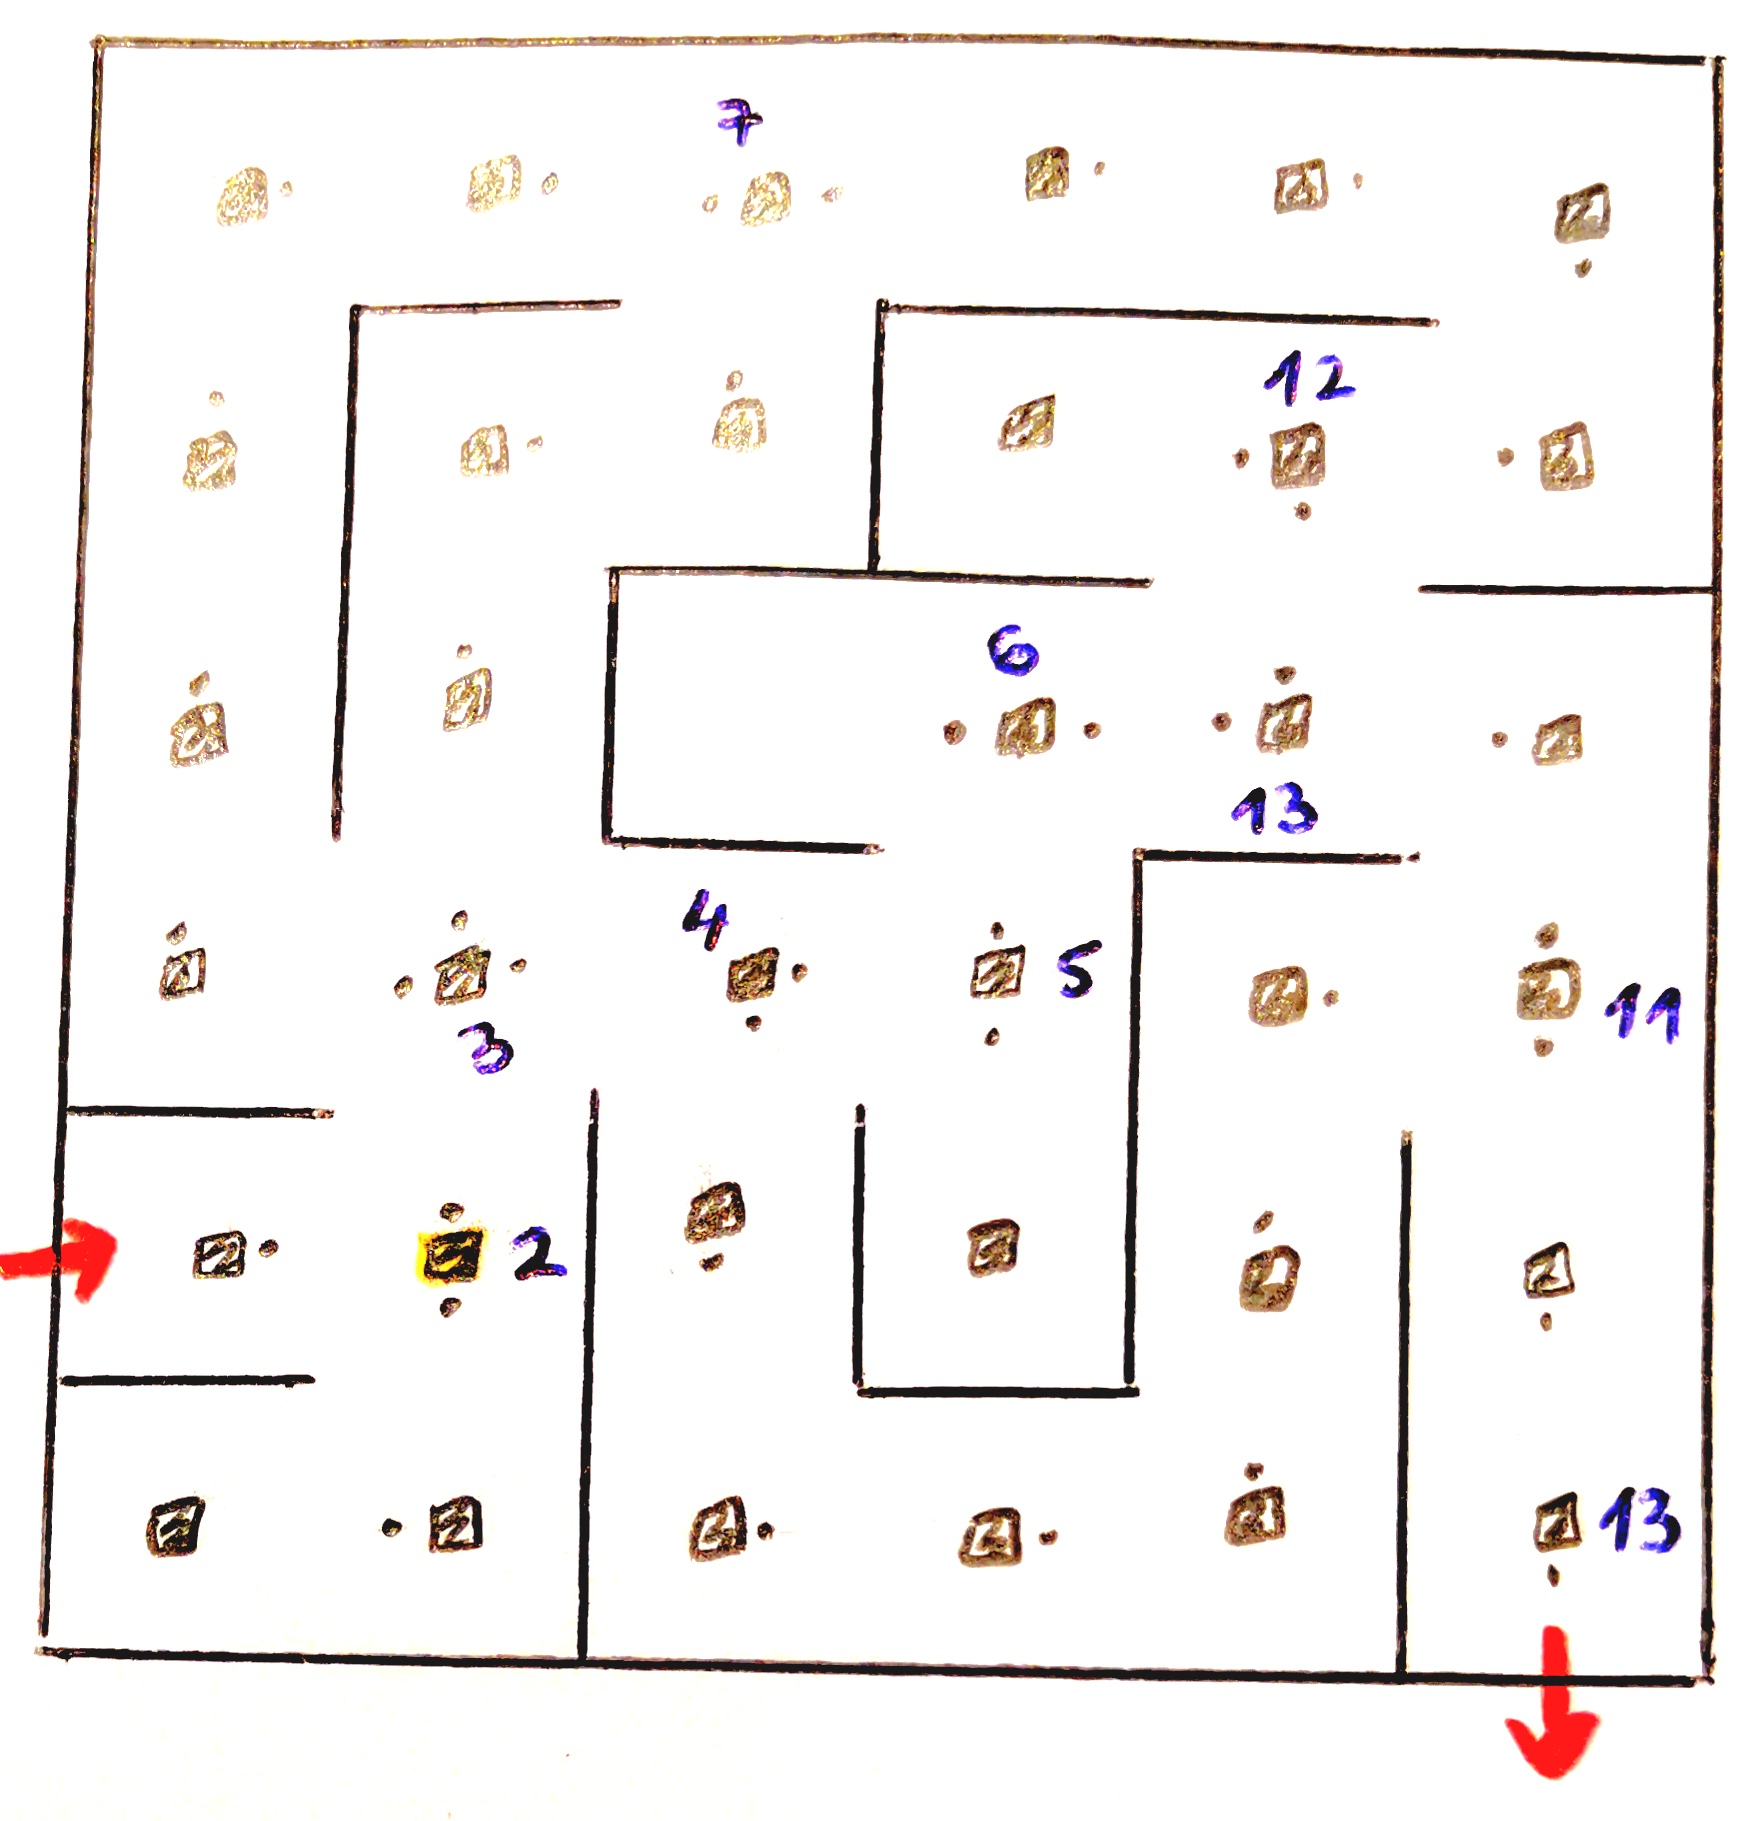 7
12
6
13
4
5
3
11
2
13